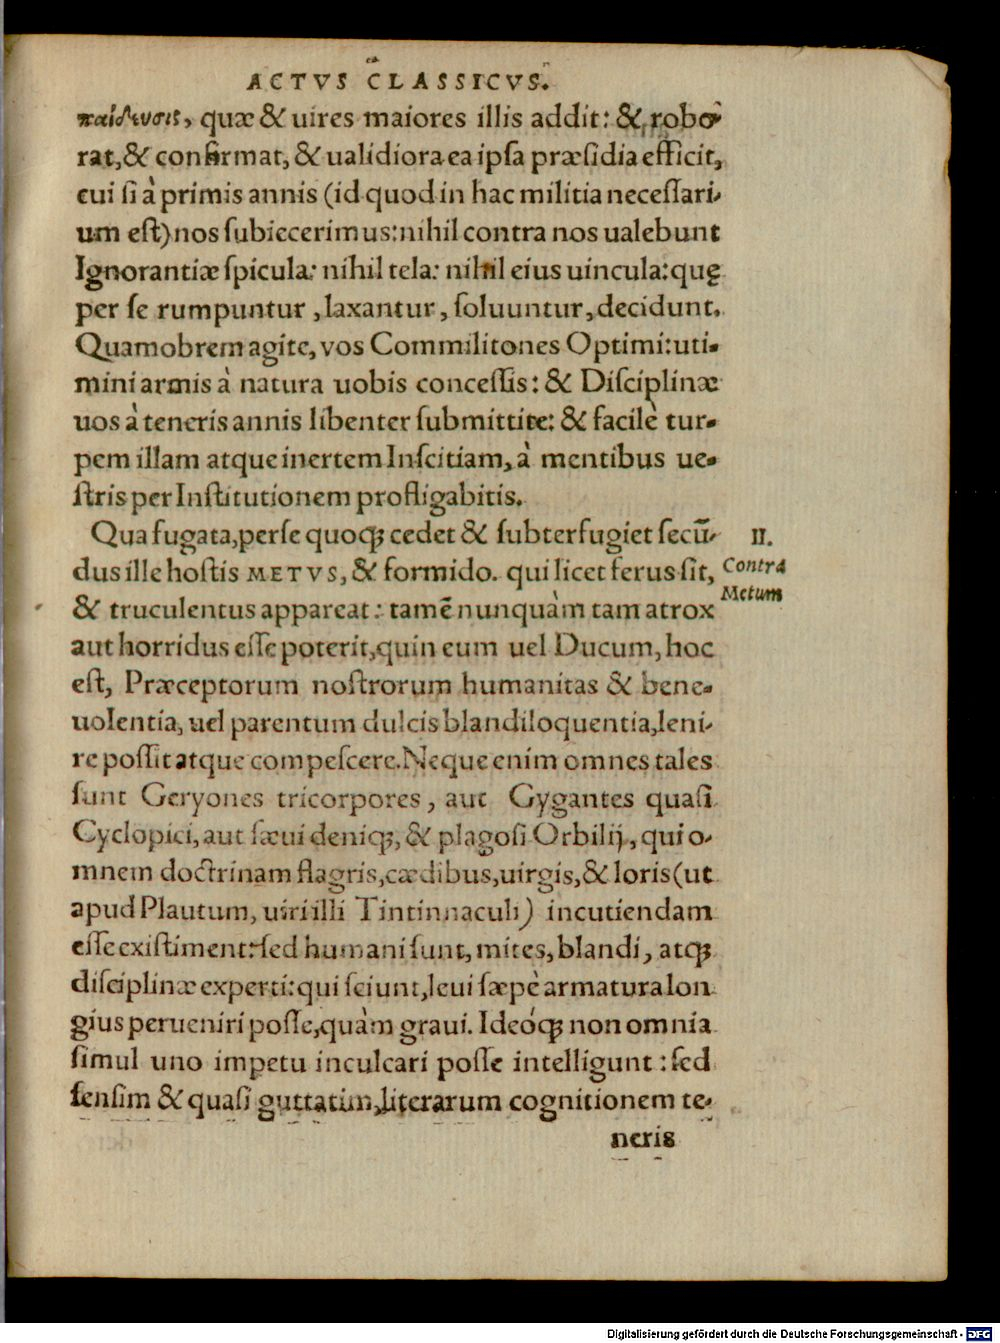 ACTVS CLASSICVS.
παίδευσις, quæ & uires maiores illis addit: & robo-
rat, & confirmat, & ualidiora ea ipſa præſidia efficit,
cui ſi à primis annis (id quod in hac militia neceſſari-
um eſt) nos ſubiecerimus: nihil contra nos ualebunt
Ignorantiæ ſpicula: nihil tela: nihil eius uincula: quę
per ſe rumpuntur, laxantur, ſoluuntur, decidunt.
Quamobrem agite, vos Commilitones Optimi: uti-
mini armis à natura uobis conceſſis: & Diſciplinæ
uos à teneris annis libenter ſubmittite: & facilè tur-
pem illam atque inertem Inſcitiam, à mentibus ue-
ſtris per Inſtitutionem profligabitis.
Qua fugata, per ſe quoq; cedet & ſubterfugiet ſecū-
II.
dus ille hoſtis METVS, & formido. qui licet ferus ſit,
Contra
Metum
& truculentus appareat: tamē nunquàm tam atrox
aut horridus eſſe poterit, quin eum uel Ducum, hoc
eſt, Præceptorum noſtrorum humanitas & bene-
uolentia, uel parentum dulcis blandiloquentia, leni-
re poſſit atque compeſcere. Neque enim omnes tales
ſunt Geryones tricorpores, aut Gygantes quaſi
Cyclopici, aut ſæui deniq;, & plagoſi Orbilij, qui o-
mnem doctrinam flagris, cædibus, uirgis, & loris (ut
apud Plautum, uiri illi Tintinnaculi) incutiendam
eſſe exiſtiment: ſed humani ſunt, mites, blandi, atq;
diſciplinæ experti: qui ſciunt, leui ſæpè armatura lon
gius perueniri poſſe, quàm graui. Ideóq; non omnia
ſimul uno impetu inculcari poſſe intelligunt: ſed
ſenſim & quaſi guttatim, literarum cognitionem te-
neris
Digitalisierung gefördert durch die Deutsche Forschungsgemeinschaft - DFG